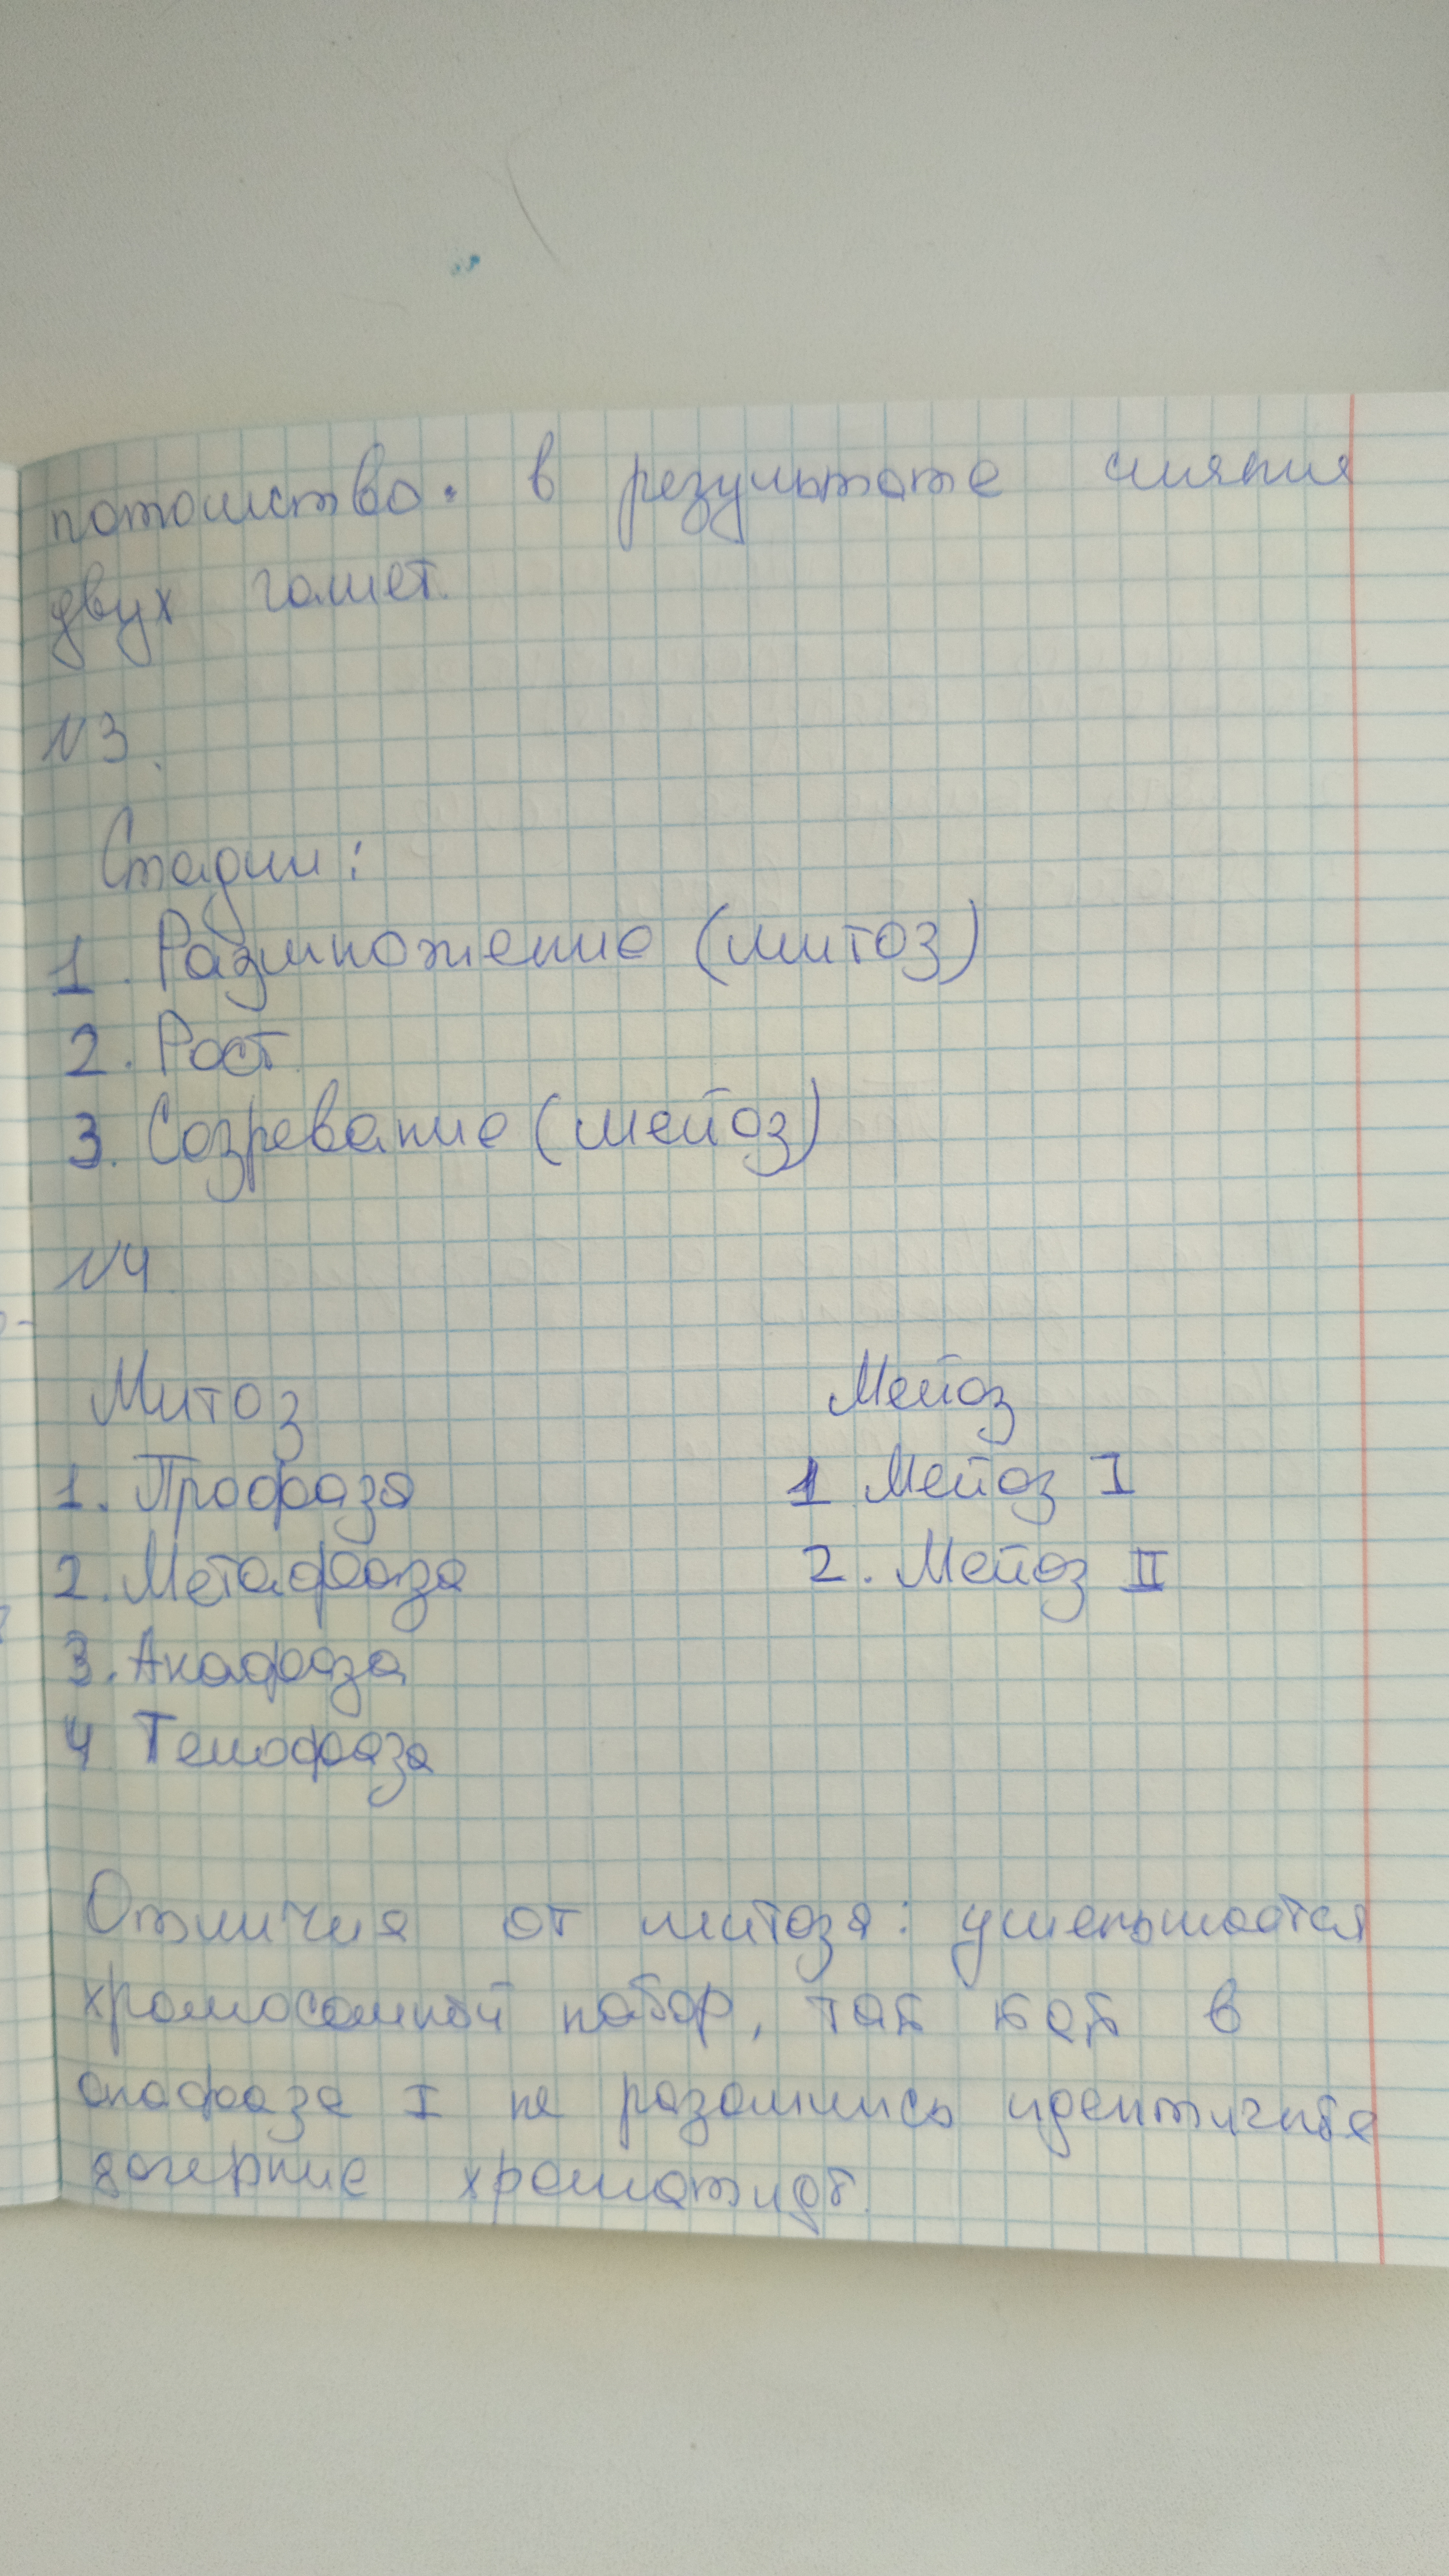 потомство. в результате слияния
двух гамет.
N3.
Стадии:
1. Размножение (митоз)
2. Рост
3. Созревание (мейоз)
N4
Митоз Мейоз
1. Профаза 1 Мейоз I
2. Метафаза 2. Мейоз II
3. Анафаза
4 Телофаза
Отличия от митоза: уменьшается
хромосомный набор, так как в
анафазе I не разошлись идентичные
дочерние хроматиды.